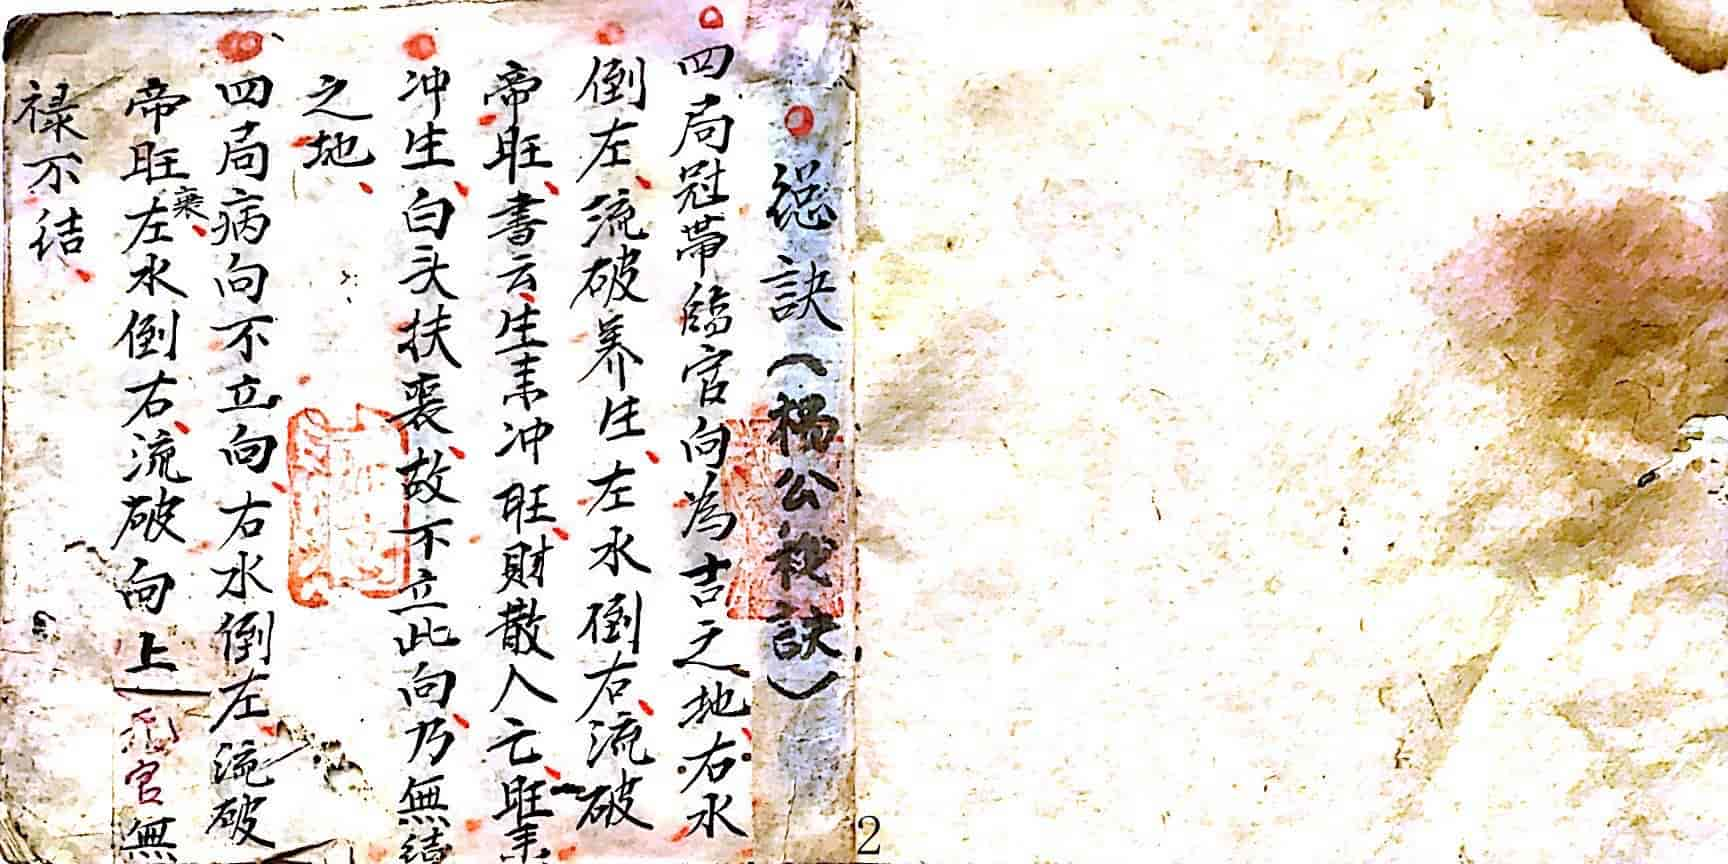 總訣(楊公秘訣)
四局冠帶臨官向為吉之地右水
倒左流破养生左水倒右流破
帝旺書云生来冲旺財散人亡旺来
冲生白头扶丧故不立此向乃無结
之地
四局病向不立向右水倒左流破
帝旺衰左水倒右流破向上 官無
禄不结
2